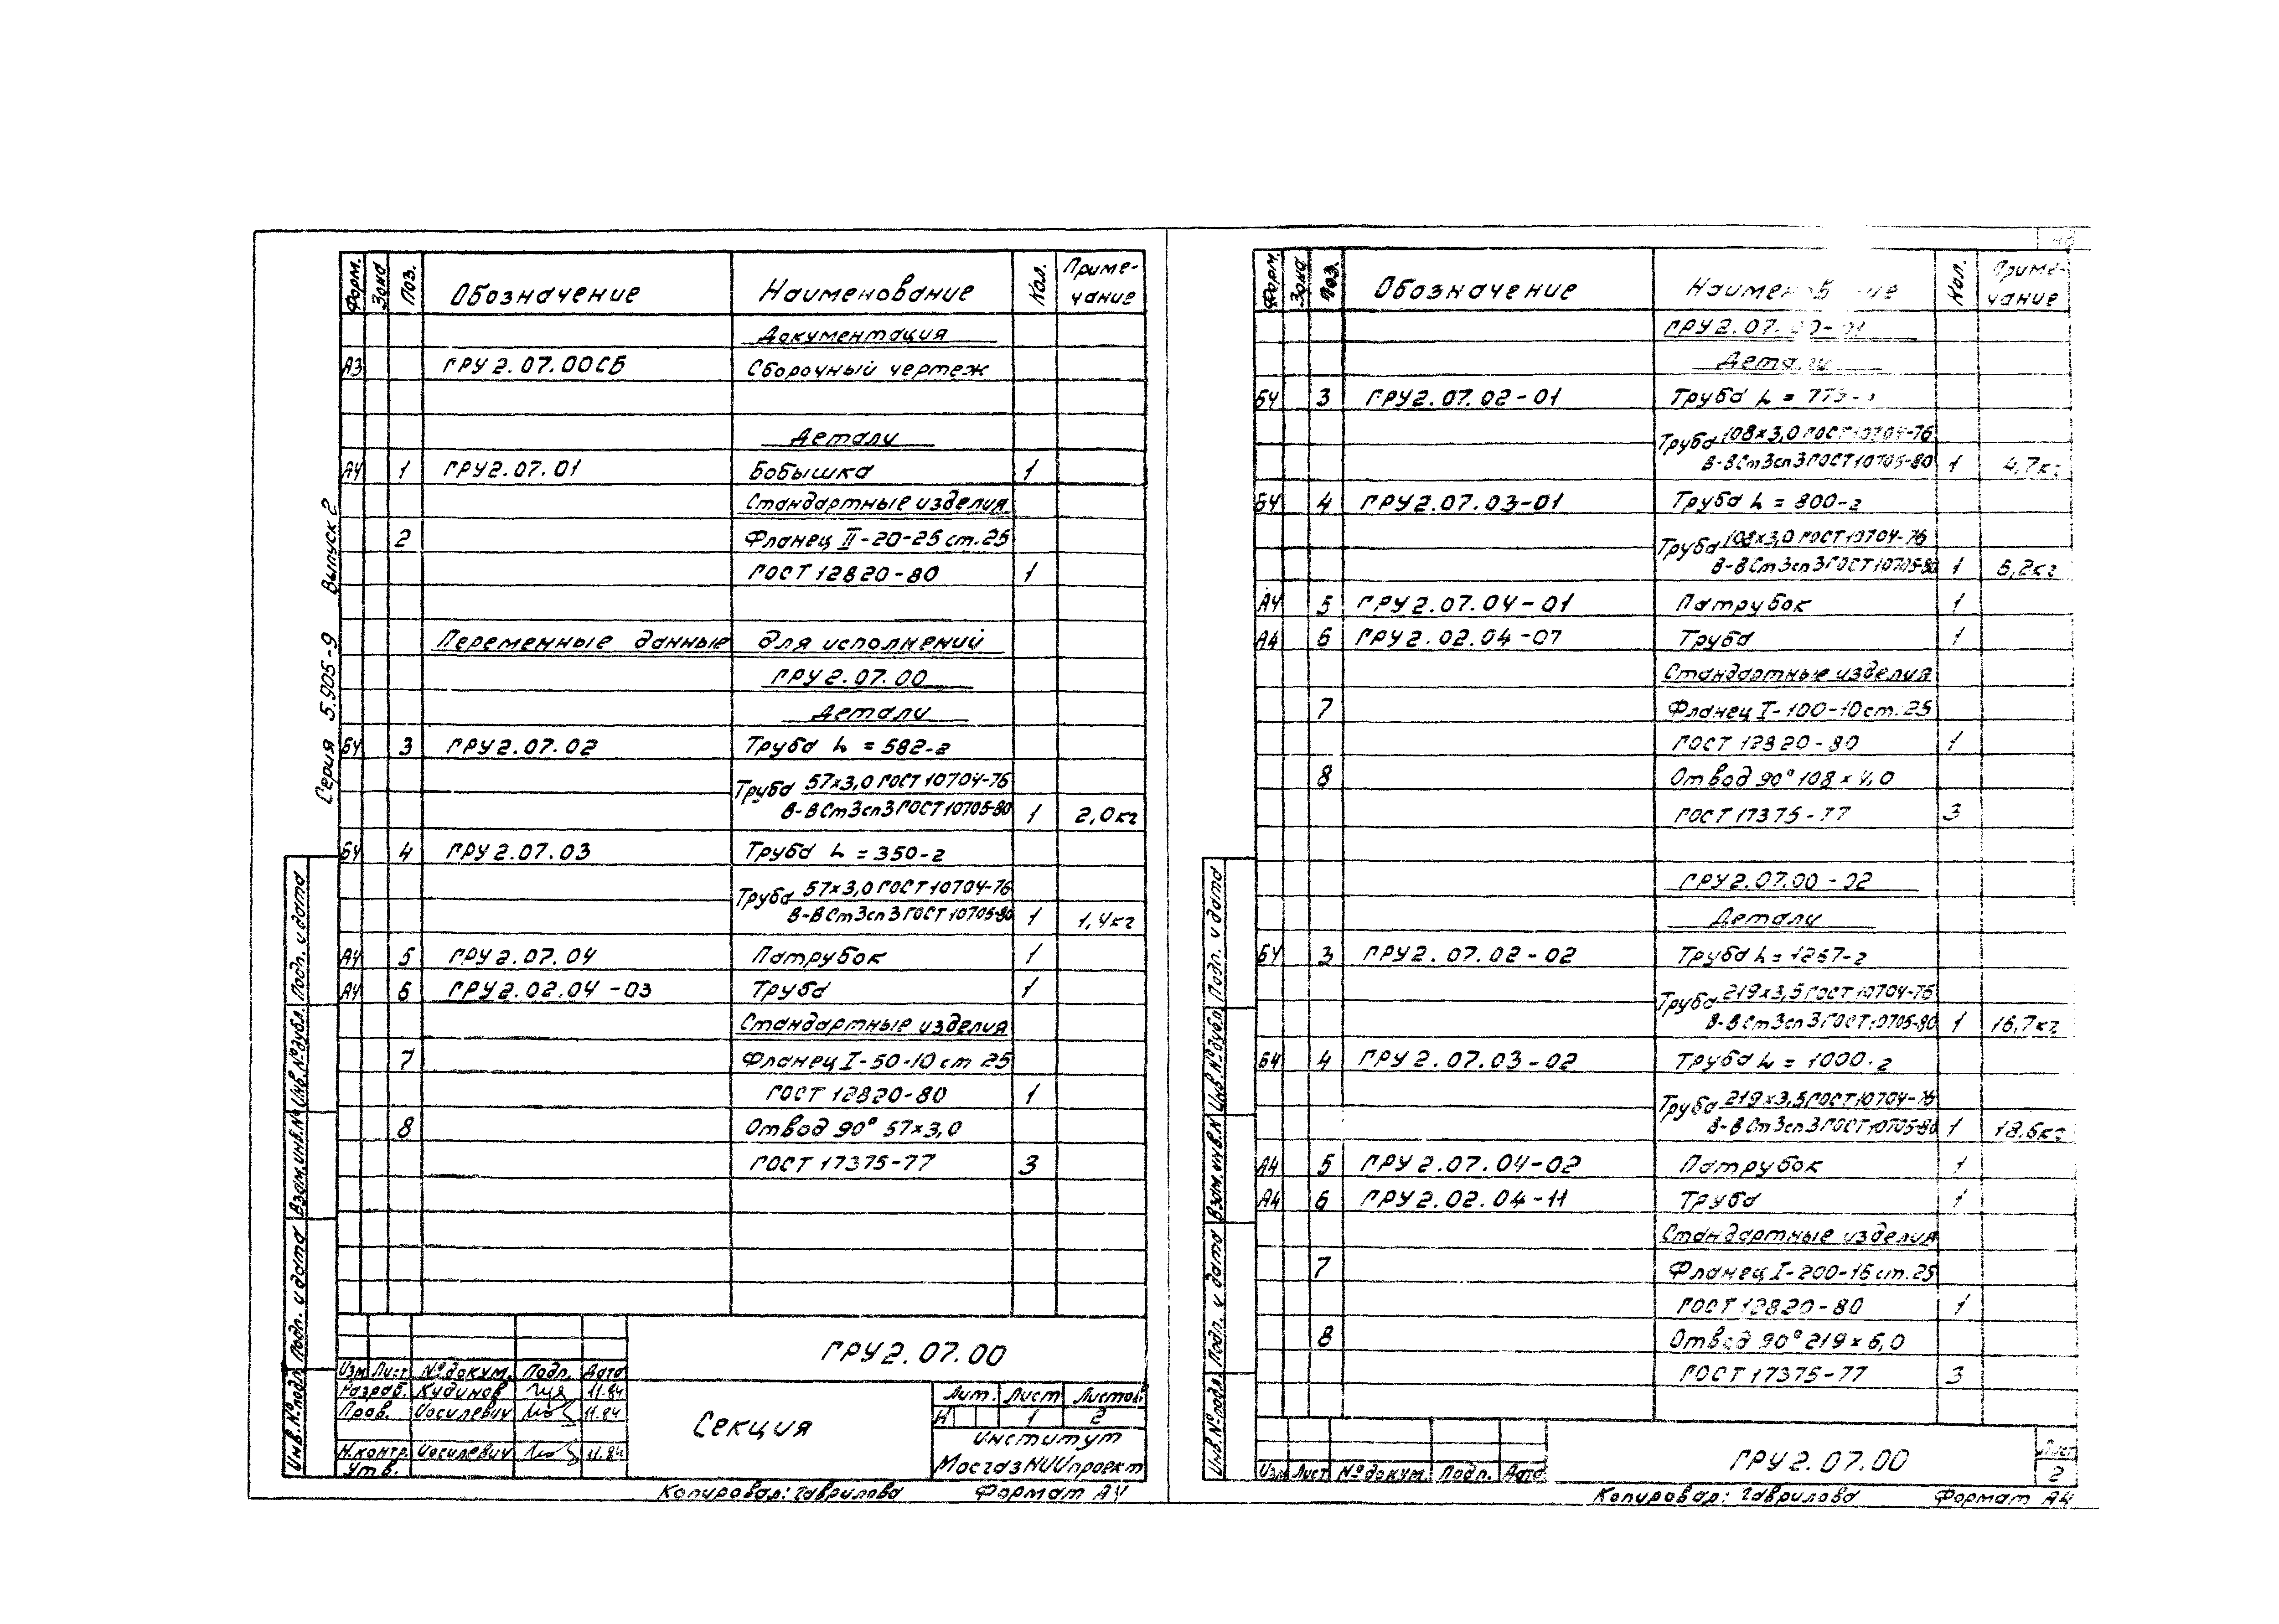 Серия 5.905-9 Выпуск 2
Форм. Зона Поз. Обозначение Наименование Кол. Приме-
чание
Документация
А3 ГРУ2.07.00СБ Сборочный чертеж
Детали
А4 1 ГРУ2.07.01 Бобышка 1
Стандартные изделия
2 Фланец II-20-25 ст.25
ГОСТ 12820-80 1
Переменные данные для исполнений
ГРУ2.07.00
Детали
БЧ 3 ГРУ2.07.02 Труба L = 582-2
Труба 57х3,0 ГОСТ 10704-76
В-ВСт3сп3 ГОСТ 10705-80 1 2,0кг
БЧ 4 ГРУ2.07.03 Труба L = 350-2
Труба 57х3,0 ГОСТ 10704-76
В-ВСт3сп3 ГОСТ 10705-80 1 1,4кг
А4 5 ГРУ2.07.04 Патрубок 1
А4 6 ГРУ2.02.04-03 Труба 1
Стандартные изделия
7 Фланец I-50-10 ст 25
ГОСТ 12820-80 1
8 Отвод 90° 57х3,0
ГОСТ 17375-77 3
Инв.№подл. Подп. и дата Взам.инв.№ Инв.№дубл. Подп. и дата
ГРУ2.07.00
Изм Лист №докум. Подп. Дата
Разраб. Кудинов 11.84
Пров. Иосилевич 11.84
Н.контр. Иосилевич 11.84
Утв.
Секция
Лит. Лист Листов
И 1 2
Институт
МосгазНИИпроект
Копировал: Гаврилова Формат А4
Форм. Зона Поз. Обозначение Кол. Приме-
чание
Детали
БЧ 3 ГРУ2.07.02-01 Труба L =
Труба 108х3,0 ГОСТ 10704-76
В-ВСт3сп3 ГОСТ 10705-80 1 4,7кг
БЧ 4 ГРУ2.07.03-01 Труба L = 800-2
Труба 108х3,0 ГОСТ 10704-76
В-ВСт3сп3 ГОСТ 10705-80 1 6,2кг
А4 5 ГРУ2.07.04-01 Патрубок 1
А4 6 ГРУ2.02.04-07 Труба 1
Стандартные изделия
7 Фланец I-100-10 ст.25
ГОСТ 12820-80 1
8 Отвод 90° 108х4,0
ГОСТ 17375-77 3
ГРУ2.07.00-02
Детали
БЧ 3 ГРУ2.07.02-02 Труба L = 1257-2
Труба 219х3,5 ГОСТ 10704-76
В-ВСт3сп3 ГОСТ 10705-80 1 16,7кг
БЧ 4 ГРУ2.07.03-02 Труба L = 1000-2
Труба 219х3,5 ГОСТ 10704-76
В-ВСт3сп3 ГОСТ 10705-80 1 18,6кг
А4 5 ГРУ2.07.04-02 Патрубок 1
А4 6 ГРУ2.02.04-11 Труба 1
Стандартные изделия
7 Фланец I-200-16 ст.25
ГОСТ 12820-80 1
8 Отвод 90° 219х6,0
ГОСТ 17375-77 3
Инв.№подл. Подп. и дата Взам.инв.№ Инв.№дубл. Подп. и дата
Изм Лист №докум. Подп. Дата
ГРУ2.07.00
Лист
2
Копировал: Гаврилова Формат А4